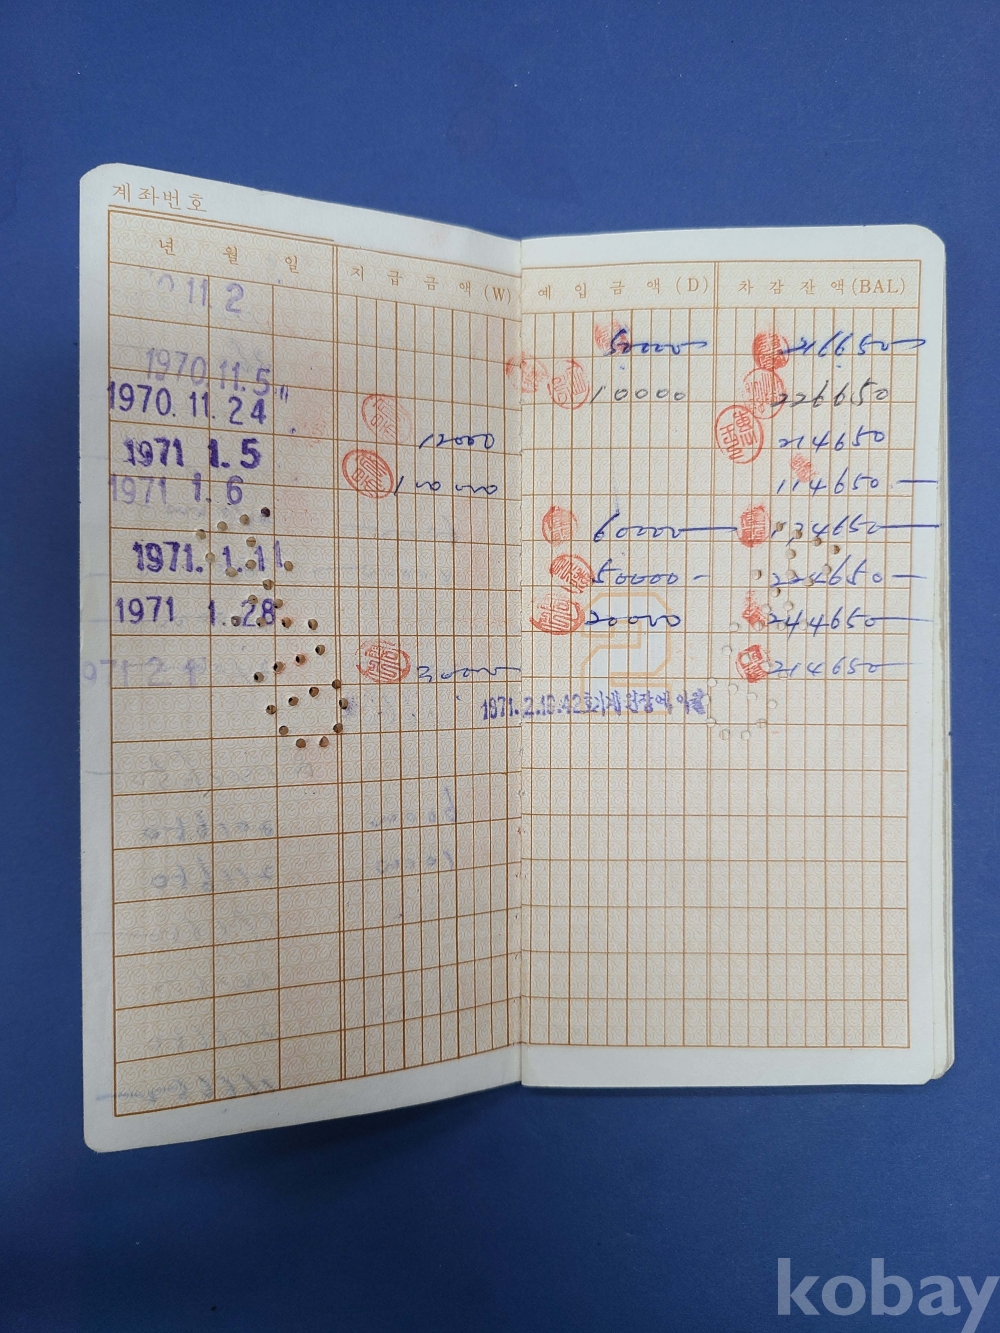 계좌번호
년 월 일 지급금액(W) 예입금액(D) 차감잔액(BAL)
11.2 5000
1970.11.5 10000 226950
1970.11.24 12000 214950
1971 1.5 100000 114950
1971 1.6 60000
1971.1.11 50000 224950
1971 1.28 20000 244950
30000 214950
1971.2.
kobay